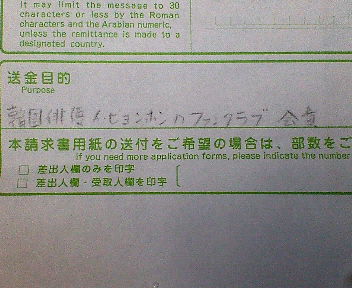 It may limit the message to 30
characters or less by the Roman
characters and the Arabian numeric,
unless the remittance is made to a
designated country.
送金目的
Purpose
韓国俳優イ・ヒョンホンのファンクラブ 会費
本請求書用紙の送付をご希望の場合は、部数をご
If you need more application forms, please indicate the number
□ 差出人欄のみを印字
□ 差出人欄・受取人欄を印字